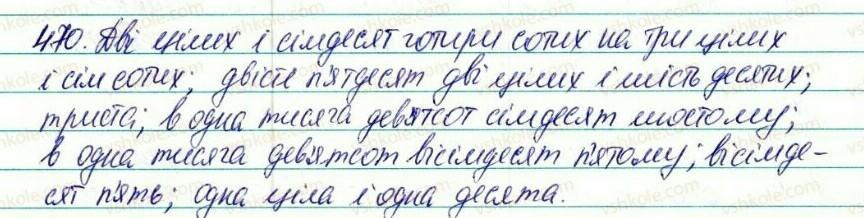 470. Дві цілих і сімдесят чотири сотих на три цілих
і сім сотих; двісті п'ятдесят дві цілих і шість десятих;
триста; в одна тисяча девятсот сімдесят шостому;
в одна тисяча дев'ятсот вісімдесят п'ятому; вісімде-
сят п'ять; одна ціла і одна десята.